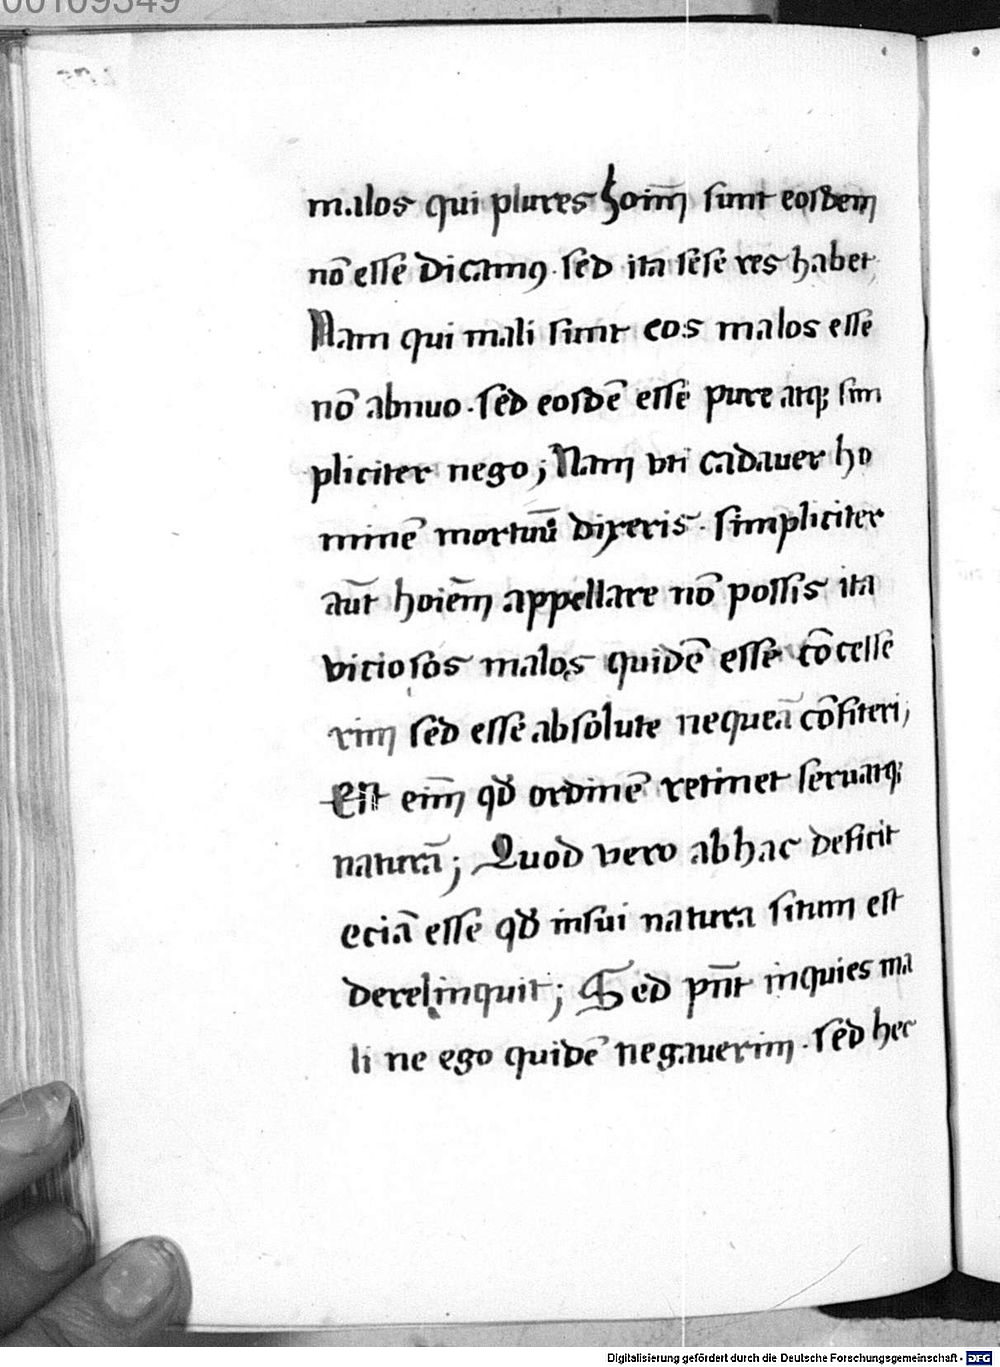 00109349
malos qui plures hoim̄ sunt eosdem
nō esse dicamꝰ · sed ita sese res habet
Nam qui mali sunt eos malos esse
nō abnuo · sed eosdē esse pure atqꝫ sim
pliciter nego ; Nam vti cadauer ho
minē mortuū dixeris · simpliciter
aūt hoiēm appellare nō possis ita
viciosos malos quidē esse cōcesse
rim sed esse absolute nequeā cōfiteri ;
Est eim̄ qđ ordinē retinet seruatqꝫ
naturā ; Quod vero ab hac deficit
eciā esse qđ in sui natura situm est
derelinquit ; Sed pn̄t inquies ma
li ne ego quidē negauerim · sed hec
Digitalisierung gefördert durch die Deutsche Forschungsgemeinschaft - DFG